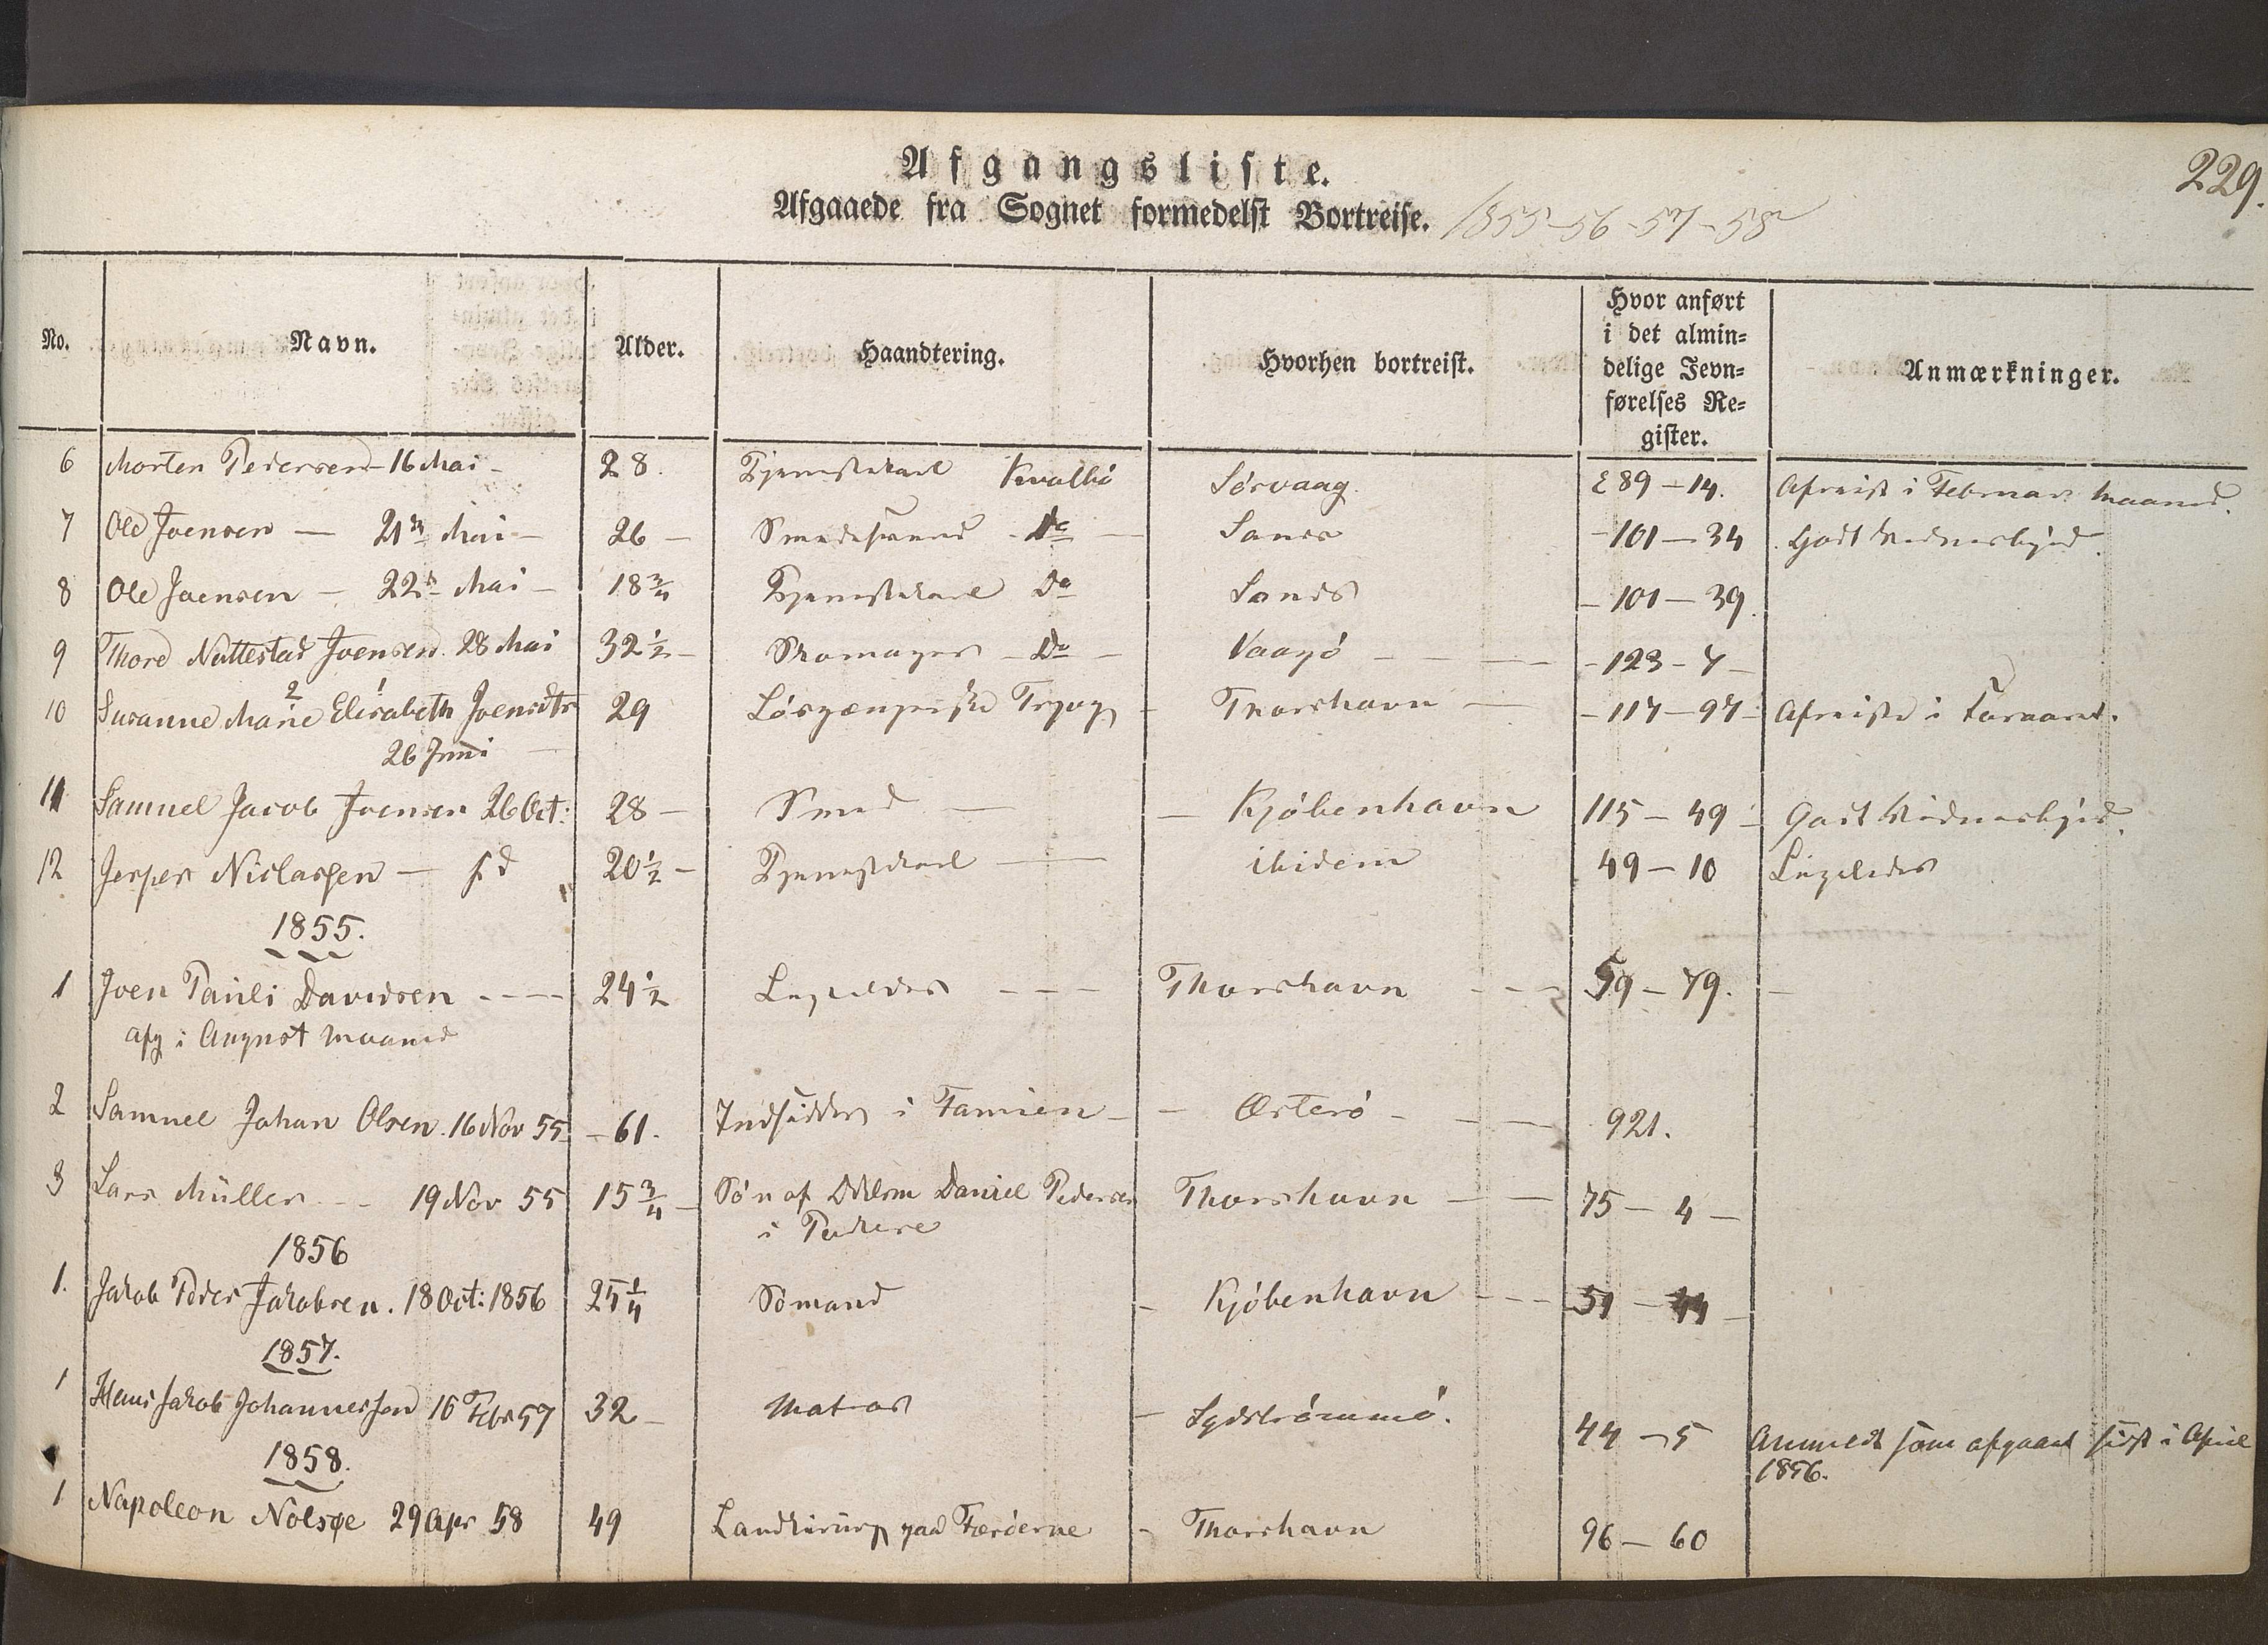 229.
Afgangsliste.
Afgaaede fra Sognet formedelst Bortreise. 1855-56-57-58
No. Navn. Alder. Haandtering. Hvorhen bortreist. Hvor anført i det almin= delige Jevn= førelses Re= gister. Anmærkninger.
6 Morten Pedersen - 16 Mai - 28. Tjenestekarl Kvalbö Sörvaag E 89 - 14. Afreist i Februar Maaned.
7 Ole Joensen — 21de Mai - 26 - Smedesvend Do — Sands - 101 - 34 Godt Vidnesbyrd.
8 Ole Joensen - 22de Mai - 18 3/4 Tjenestekarl Do Sands - 101 - 39.
9 Thore Nattestad Joensen 28 Mai 32 1/2 - Skomager - Do - Vaagö - - - 123 - 7 -
10 Susanne Marie 2 Elisabeth 1 Joensdtr 29 Lösgængerske - Thorshavn — - 117 - 97 - Afreiste i Foraaret.
26 Juni —
11 Samuel Jacob Joensen 26 Oct: 28 - Smed — - Kjöbenhavn 115 - 49 - Godt Vidnesbyrd.
12 Jesper Niclassen — 20 1/2 - Tjenestekarl — ibidem 49 - 10 Ligeledes
1855.
1 Joen Pauli Davidsen - - - 24 1/2 Ligeledes - - - Thorshavn - - - 59 - 79. -
afg i August Maaned
2 Samuel Johan Olsen. 16 Nov 55 - 61. Indsidder i Famien - - Österö - - - 921.
3 Lars Müller - - 19 Nov 55 15 3/4 - Sön af Daniel Pedersen Thorshavn — 75 - 4 -
i
1856
1. Jakob Peder Jakobsen. 18 Oct: 1856 25 1/4 Sömand - Kjöbenhavn - - - 51 - 44 -
1857.
1 Hans Jakob Johannessen 16 Febr 57 32 - Matros - Sydströmmö. 44 - 5 Anmeldt som afgaaet sidst i April
1856.
1858.
1 Napoleon Nolsøe 29 Apr 58 49 Landkirurg paa Færöerne - Thorshavn 96 - 60